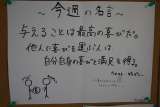 ～今週の名言～
与えることは最高の喜びだ。
他人の喜びを運ぶ人は
自分自身の喜びと満足を得る。